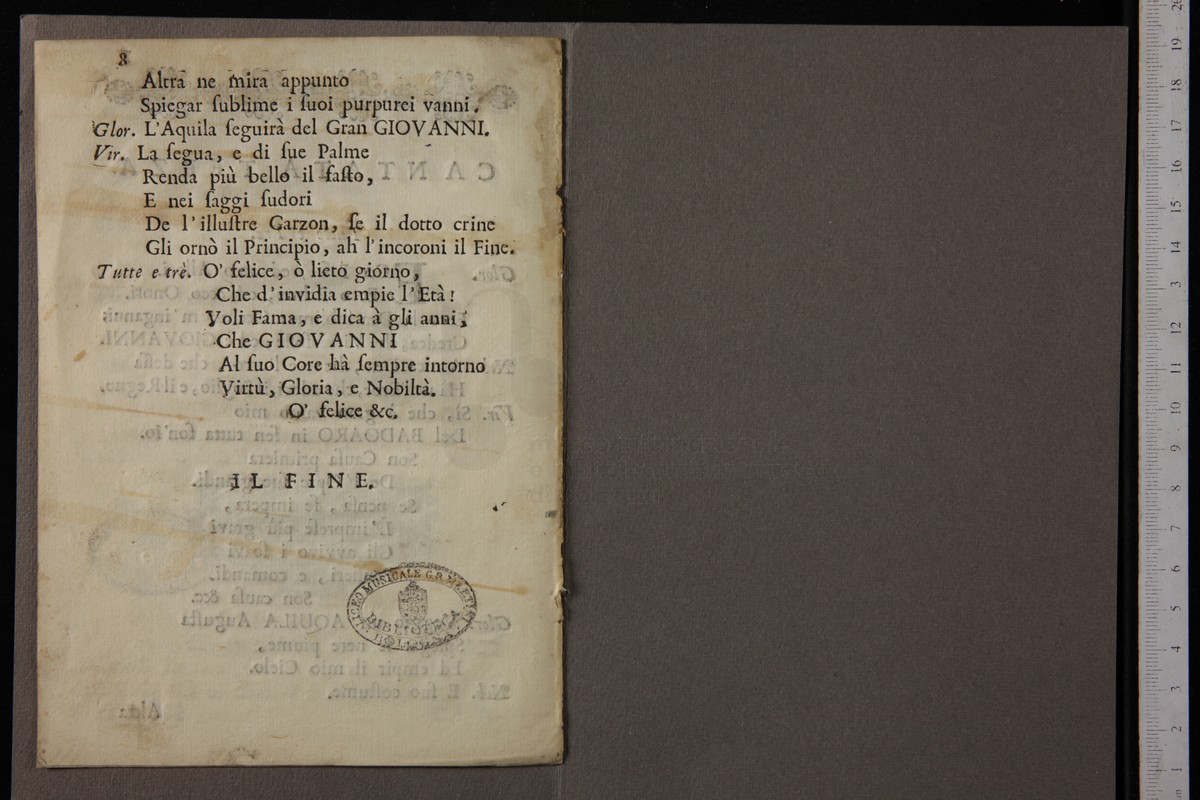 8
Altra ne mira appunto
Spiegar ſublime i ſuoi purpurei vanni.
Glor. L'Aquila ſeguirà del Gran GIOVANNI.
Vir. La ſegua, e di ſue Palme
Renda più bello il faſto,
E nei ſaggi ſudori
De l'illuſtre Garzon, ſe il dotto crine
Gli ornò il Principio, ah l'incoroni il Fine.
Tutte e trè. O' felice, ò lieto giorno,
Che d'invidia empie l'Età!
Voli Fama, e dica à gli anni,
Che GIOVANNI
Al ſuo Core hà ſempre intorno
Virtù, Gloria, e Nobiltà.
O' felice &c.
IL FINE.
LICEO MUSICALE G.B. MARTINI
BIBLIOTECA
BOLOGNA